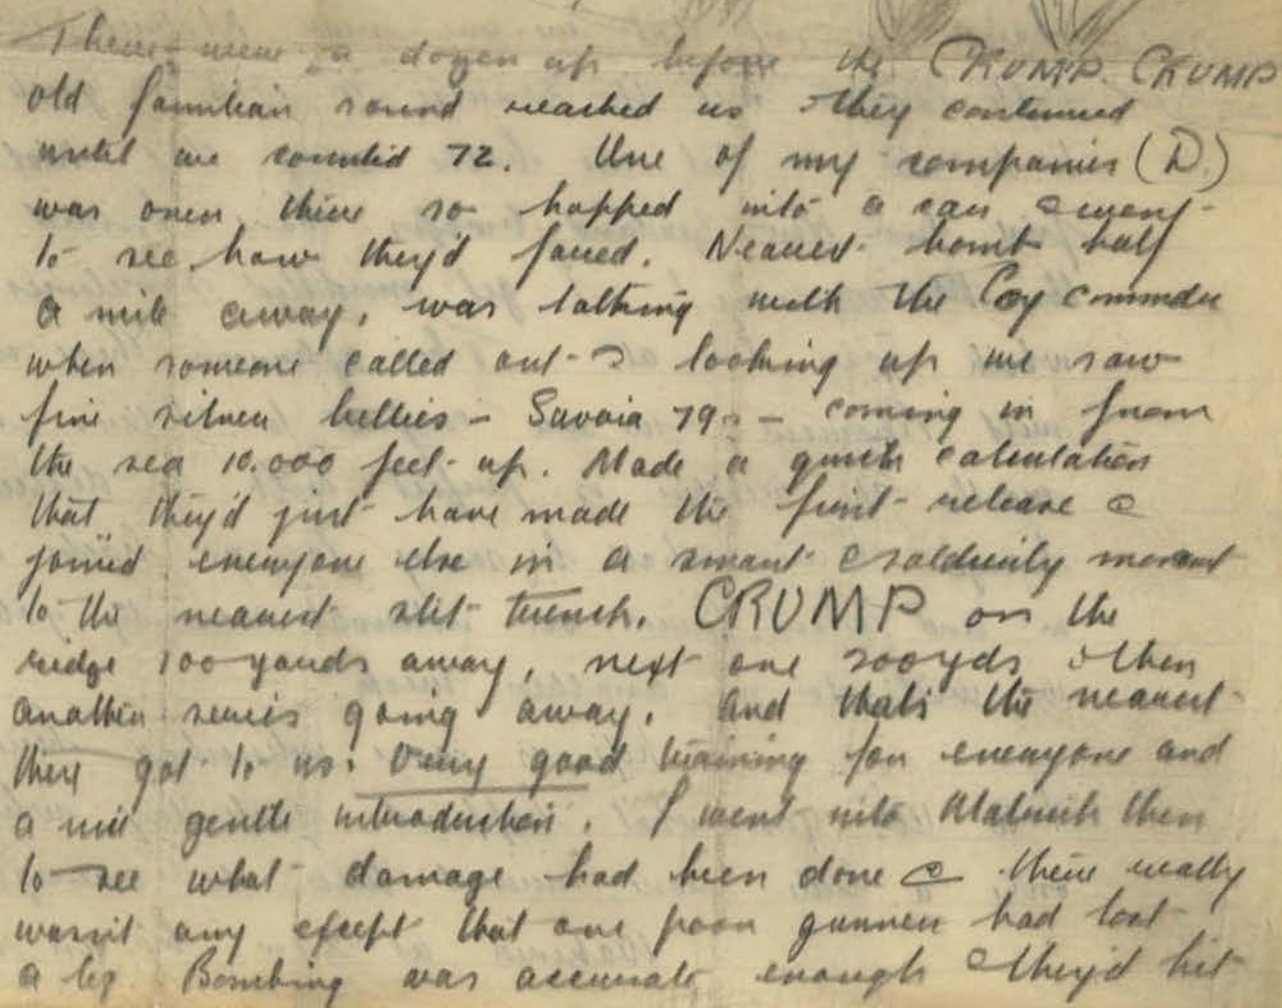 There were a dozen up before the CRUMP CRUMP
old familiar sound reached us & they continued
until we counted 72. One of my companies (D.)
was over there so hopped into a car & went
to see how they'd fared. Nearest bomb half
a mile away, was talking with the Coy commdr
when someone called out & looking up we saw
five silver bellies - Savoia 79s - coming in from
the sea 10.000 feet up. Made a quick calculation
that they'd just have made the first release &
joined everyone else in a smart & soldierly movement
to the nearest slit trench. CRUMP on the
ridge 100 yards away, next one 200yds & then
another series going away. And thats the nearest
they got to us. Very good training for everyone and
a nice gentle introduction. I went into Matruh then
to see what damage had been done & there really
wasn't any except that one poor gunner had lost
a leg. Bombing was accurate enough & they'd hit